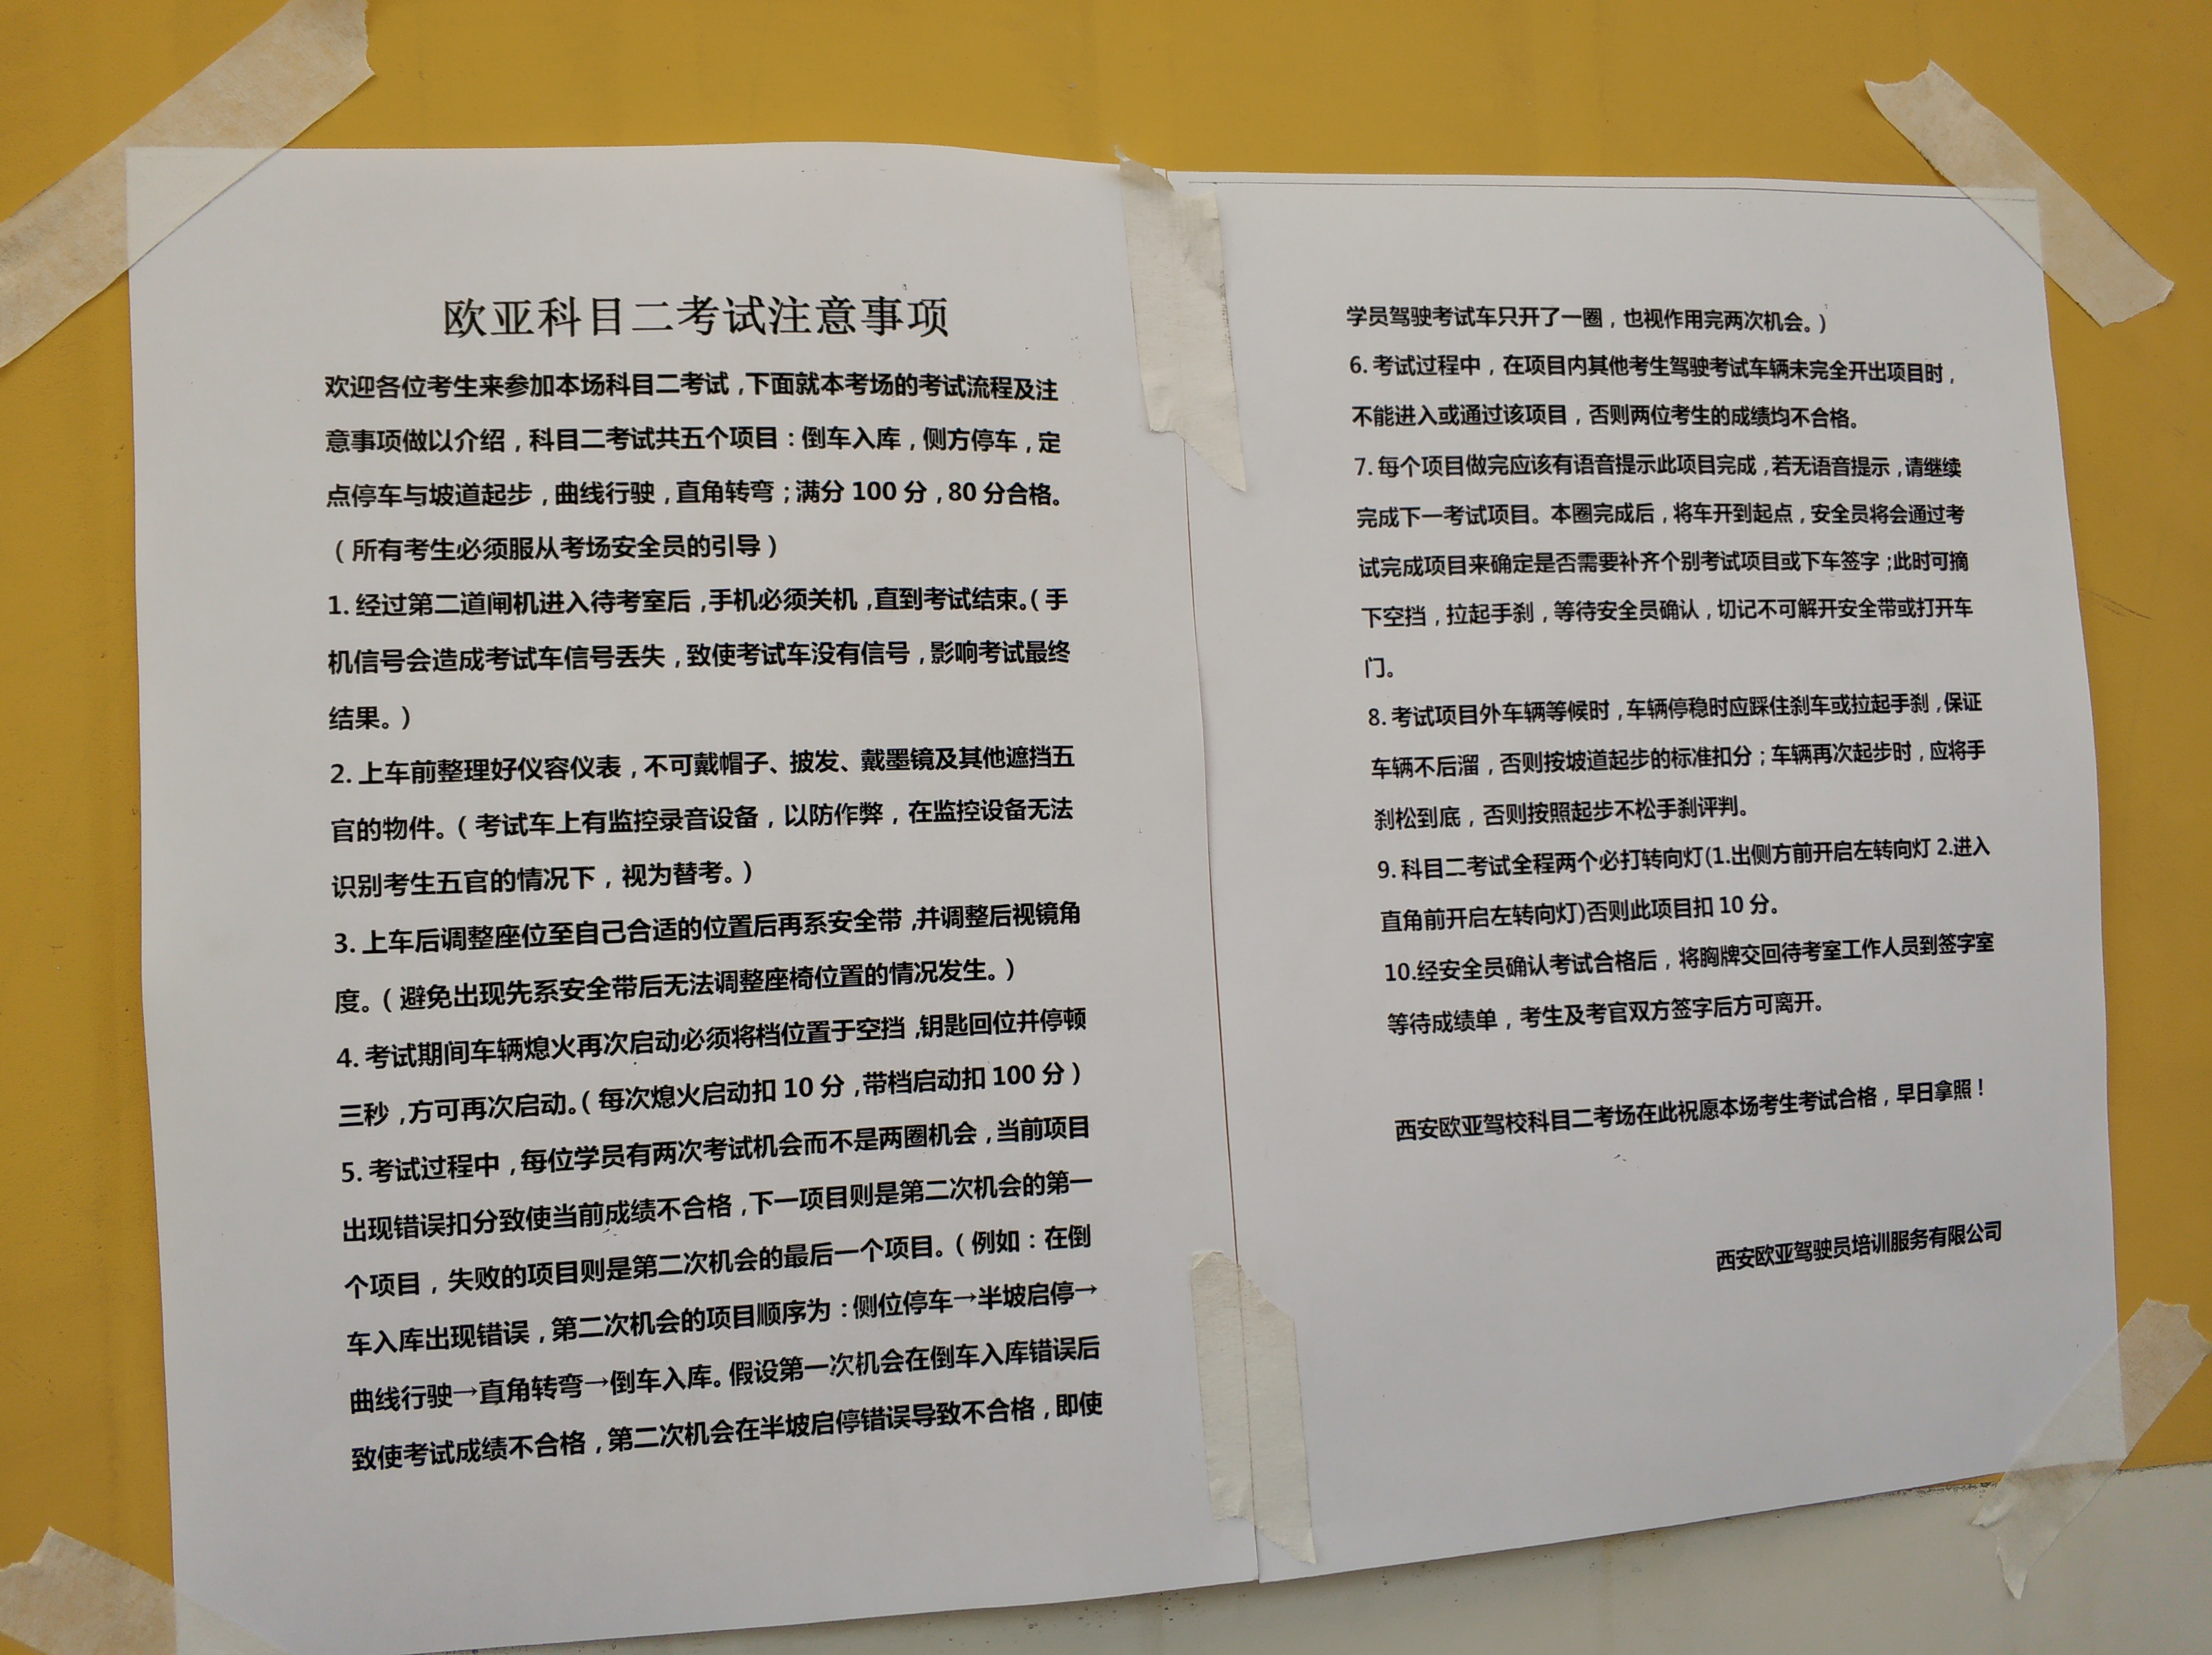 欧亚科目二考试注意事项
欢迎各位考生来参加本场科目二考试，下面就本考场的考试流程及注
意事项做以介绍，科目二考试共五个项目：倒车入库，侧方停车，定
点停车与坡道起步，曲线行驶，直角转弯；满分 100 分，80 分合格。
（所有考生必须服从考场安全员的引导）
1. 经过第二道闸机进入待考室后，手机必须关机，直到考试结束。（手
机信号会造成考试车信号丢失，致使考试车没有信号，影响考试最终
结果。）
2. 上车前整理好仪容仪表，不可戴帽子、披发、戴墨镜及其他遮挡五
官的物件。（考试车上有监控录音设备，以防作弊，在监控设备无法
识别考生五官的情况下，视为替考。）
3. 上车后调整座位至自己合适的位置后再系安全带，并调整后视镜角
度。（避免出现先系安全带后无法调整座椅位置的情况发生。）
4. 考试期间车辆熄火再次启动必须将档位置于空挡，钥匙回位并停顿
三秒，方可再次启动。（每次熄火启动扣 10 分，带档启动扣 100 分）
5. 考试过程中，每位学员有两次考试机会而不是两圈机会，当前项目
出现错误扣分致使当前成绩不合格，下一项目则是第二次机会的第一
个项目，失败的项目则是第二次机会的最后一个项目。（例如：在倒
车入库出现错误，第二次机会的项目顺序为：侧位停车→半坡启停→
曲线行驶→直角转弯→倒车入库。假设第一次机会在倒车入库错误后
致使考试成绩不合格，第二次机会在半坡启停错误导致不合格，即使
学员驾驶考试车只开了一圈，也视作用完两次机会。）
6. 考试过程中，在项目内其他考生驾驶考试车辆未完全开出项目时，
不能进入或通过该项目，否则两位考生的成绩均不合格。
7. 每个项目做完应该有语音提示此项目完成，若无语音提示，请继续
完成下一考试项目。本圈完成后，将车开到起点，安全员将会通过考
试完成项目来确定是否需要补齐个别考试项目或下车签字；此时可摘
下空挡，拉起手刹，等待安全员确认，切记不可解开安全带或打开车
门。
8. 考试项目外车辆等候时，车辆停稳时应踩住刹车或拉起手刹，保证
车辆不后溜，否则按坡道起步的标准扣分；车辆再次起步时，应将手
刹松到底，否则按照起步不松手刹评判。
9. 科目二考试全程两个必打转向灯(1.出侧方前开启左转向灯 2.进入
直角前开启左转向灯)否则此项目扣 10 分。
10.经安全员确认考试合格后，将胸牌交回待考室工作人员到签字室
等待成绩单，考生及考官双方签字后方可离开。
西安欧亚驾校科目二考场在此祝愿本场考生考试合格，早日拿照！
西安欧亚驾驶员培训服务有限公司